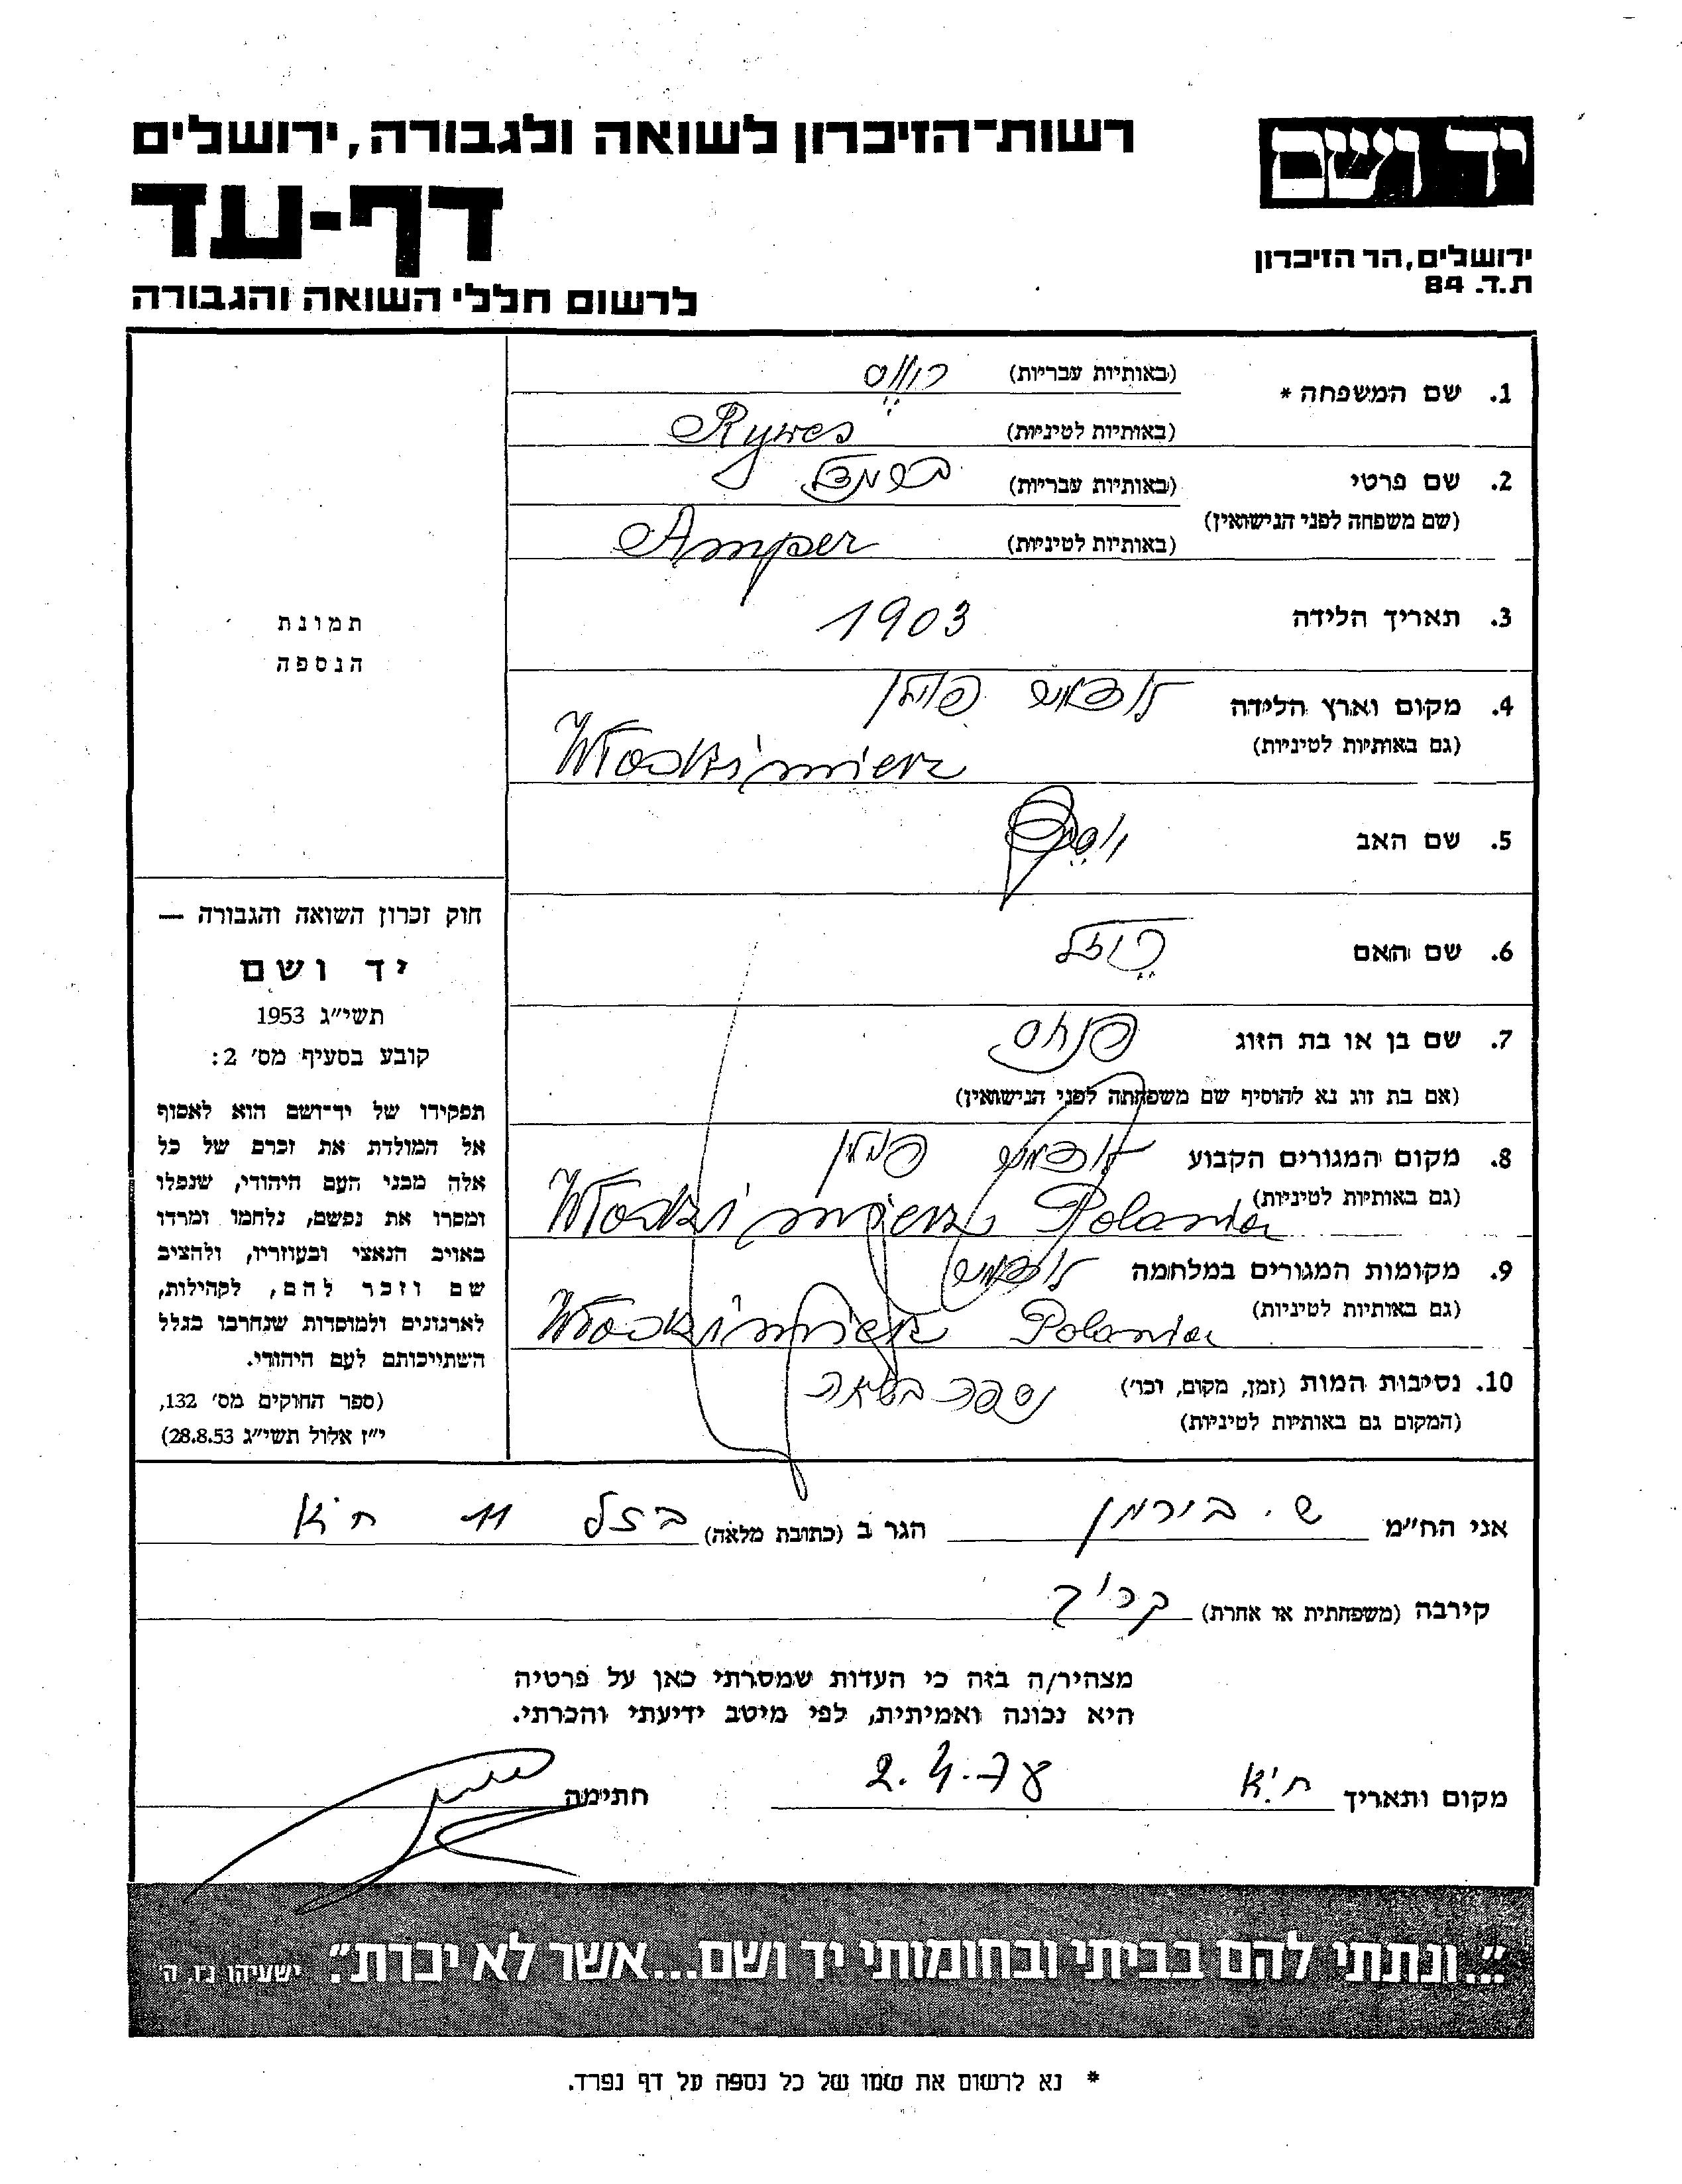 רשות־הזיכרון לשואה ולגבורה, ירושלים
יד ושם
דף-עד
ירושלים, הר הזיכרון
ת.ד. 84
לרשום חללי השואה והגבורה
1. שם המשפחה * (באותיות עבריות)
(באותיות לטיניות) Rywes
2. שם פרטי (באותיות עבריות)
(שם משפחה לפני הנישואין)
(באותיות לטיניות) Amper
3. תאריך הלידה 1903
4. מקום וארץ הלידה לודמיר פולין
(גם באותיות לטיניות) Włodzimierz
5. שם האב
6. שם האם רייזל
7. שם בן או בת הזוג פנחס
(אם בת זוג נא להוסיף שם משפחתה לפני הנישואין)
8. מקום המגורים הקבוע לודמיר פולין
(גם באותיות לטיניות) Włodzimierz Polania
9. מקומות המגורים במלחמה לודמיר
(גם באותיות לטיניות) Włodzimierz Polania
10. נסיבות המות (זמן, מקום, וכו') נספה בשואה
(המקום גם באותיות לטיניות)
תמונת
הנספה
חוק זכרון השואה והגבורה —
יד ושם
תשי"ג 1953
קובע בסעיף מס' 2:
תפקידו של יד־ושם הוא לאסוף
אל המולדת את זכרם של כל
אלה מבני העם היהודי, שנפלו
ומסרו את נפשם, נלחמו ומרדו
באויב הנאצי ובעוזריו, ולהציב
שם וזכר להם, לקהילות,
לארגונים ולמוסדות שנחרבו בגלל
השתייכותם לעם היהודי.
(ספר החוקים מס' 132,
י"ז אלול תשי"ג 28.8.53)
אני הח"מ ש. בירמן הגר ב (כתובת מלאה) ברזל 11 ת"א
קירבה (משפחתית או אחרת) קרוב
מצהיר/ה בזה כי העדות שמסרתי כאן על פרטיה
היא נכונה ואמיתית, לפי מיטב ידיעתי והכרתי.
מקום ותאריך ת"א 2.4.78 חתימה
"...ונתתי להם בביתי ובחומותי יד ושם...אשר לא יכרת". ישעיהו נו, ה'
* נא לרשום את שמו של כל נספה על דף נפרד.